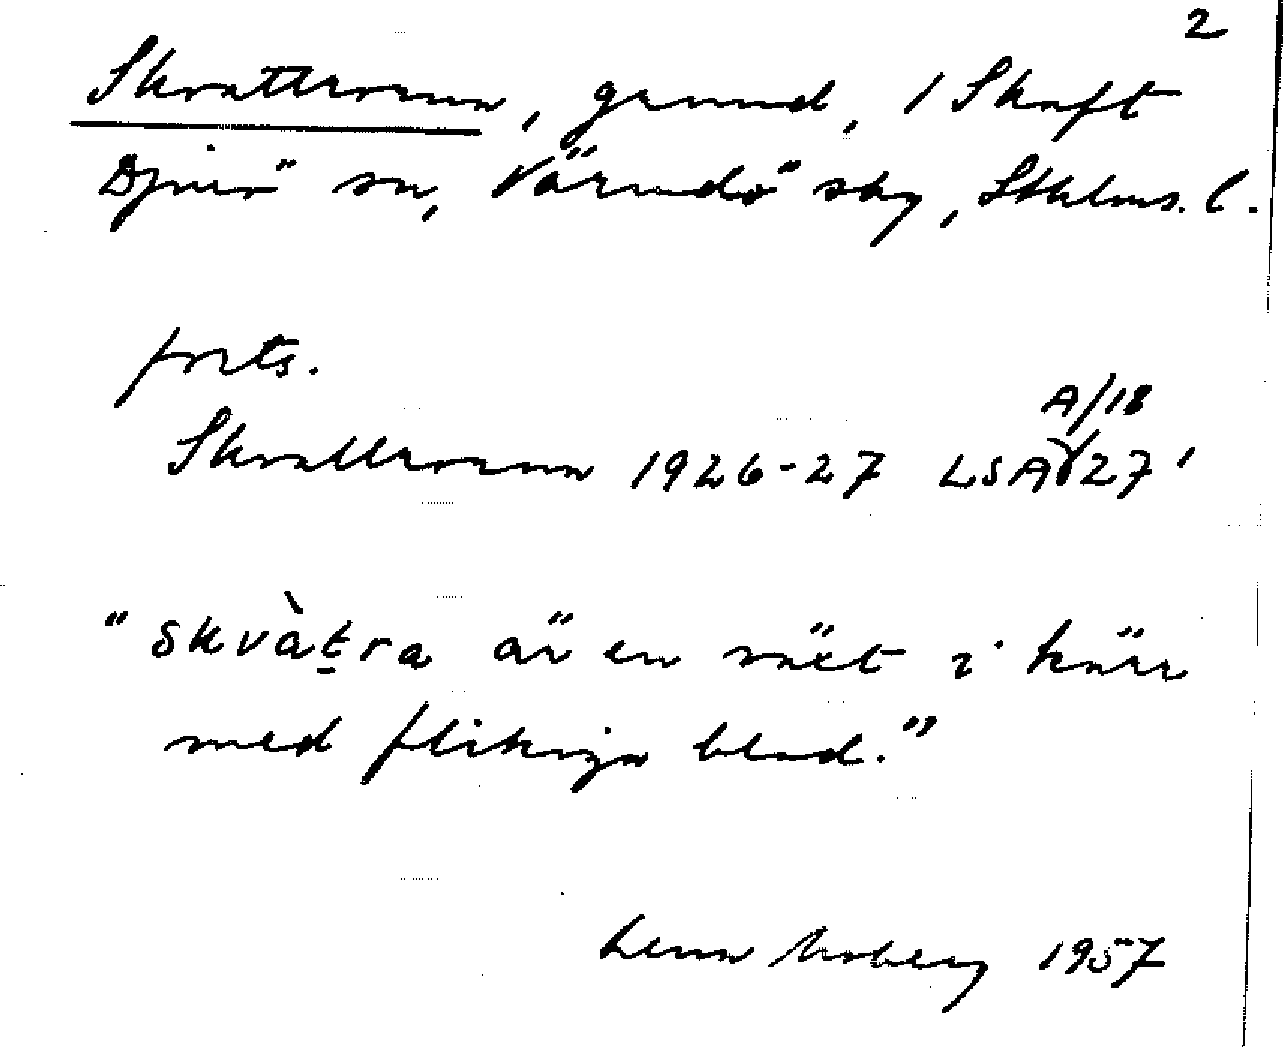 2
Skvattrorna, grund, 1 Skaft
Djurö sn, Värmdö sky, Sthlms. l.
forts.
Skvattrorna 1926-27 LSA A/18 27'
"skvàtra är en växt i kärr
med flikiga blad."
Lena Moberg 1957